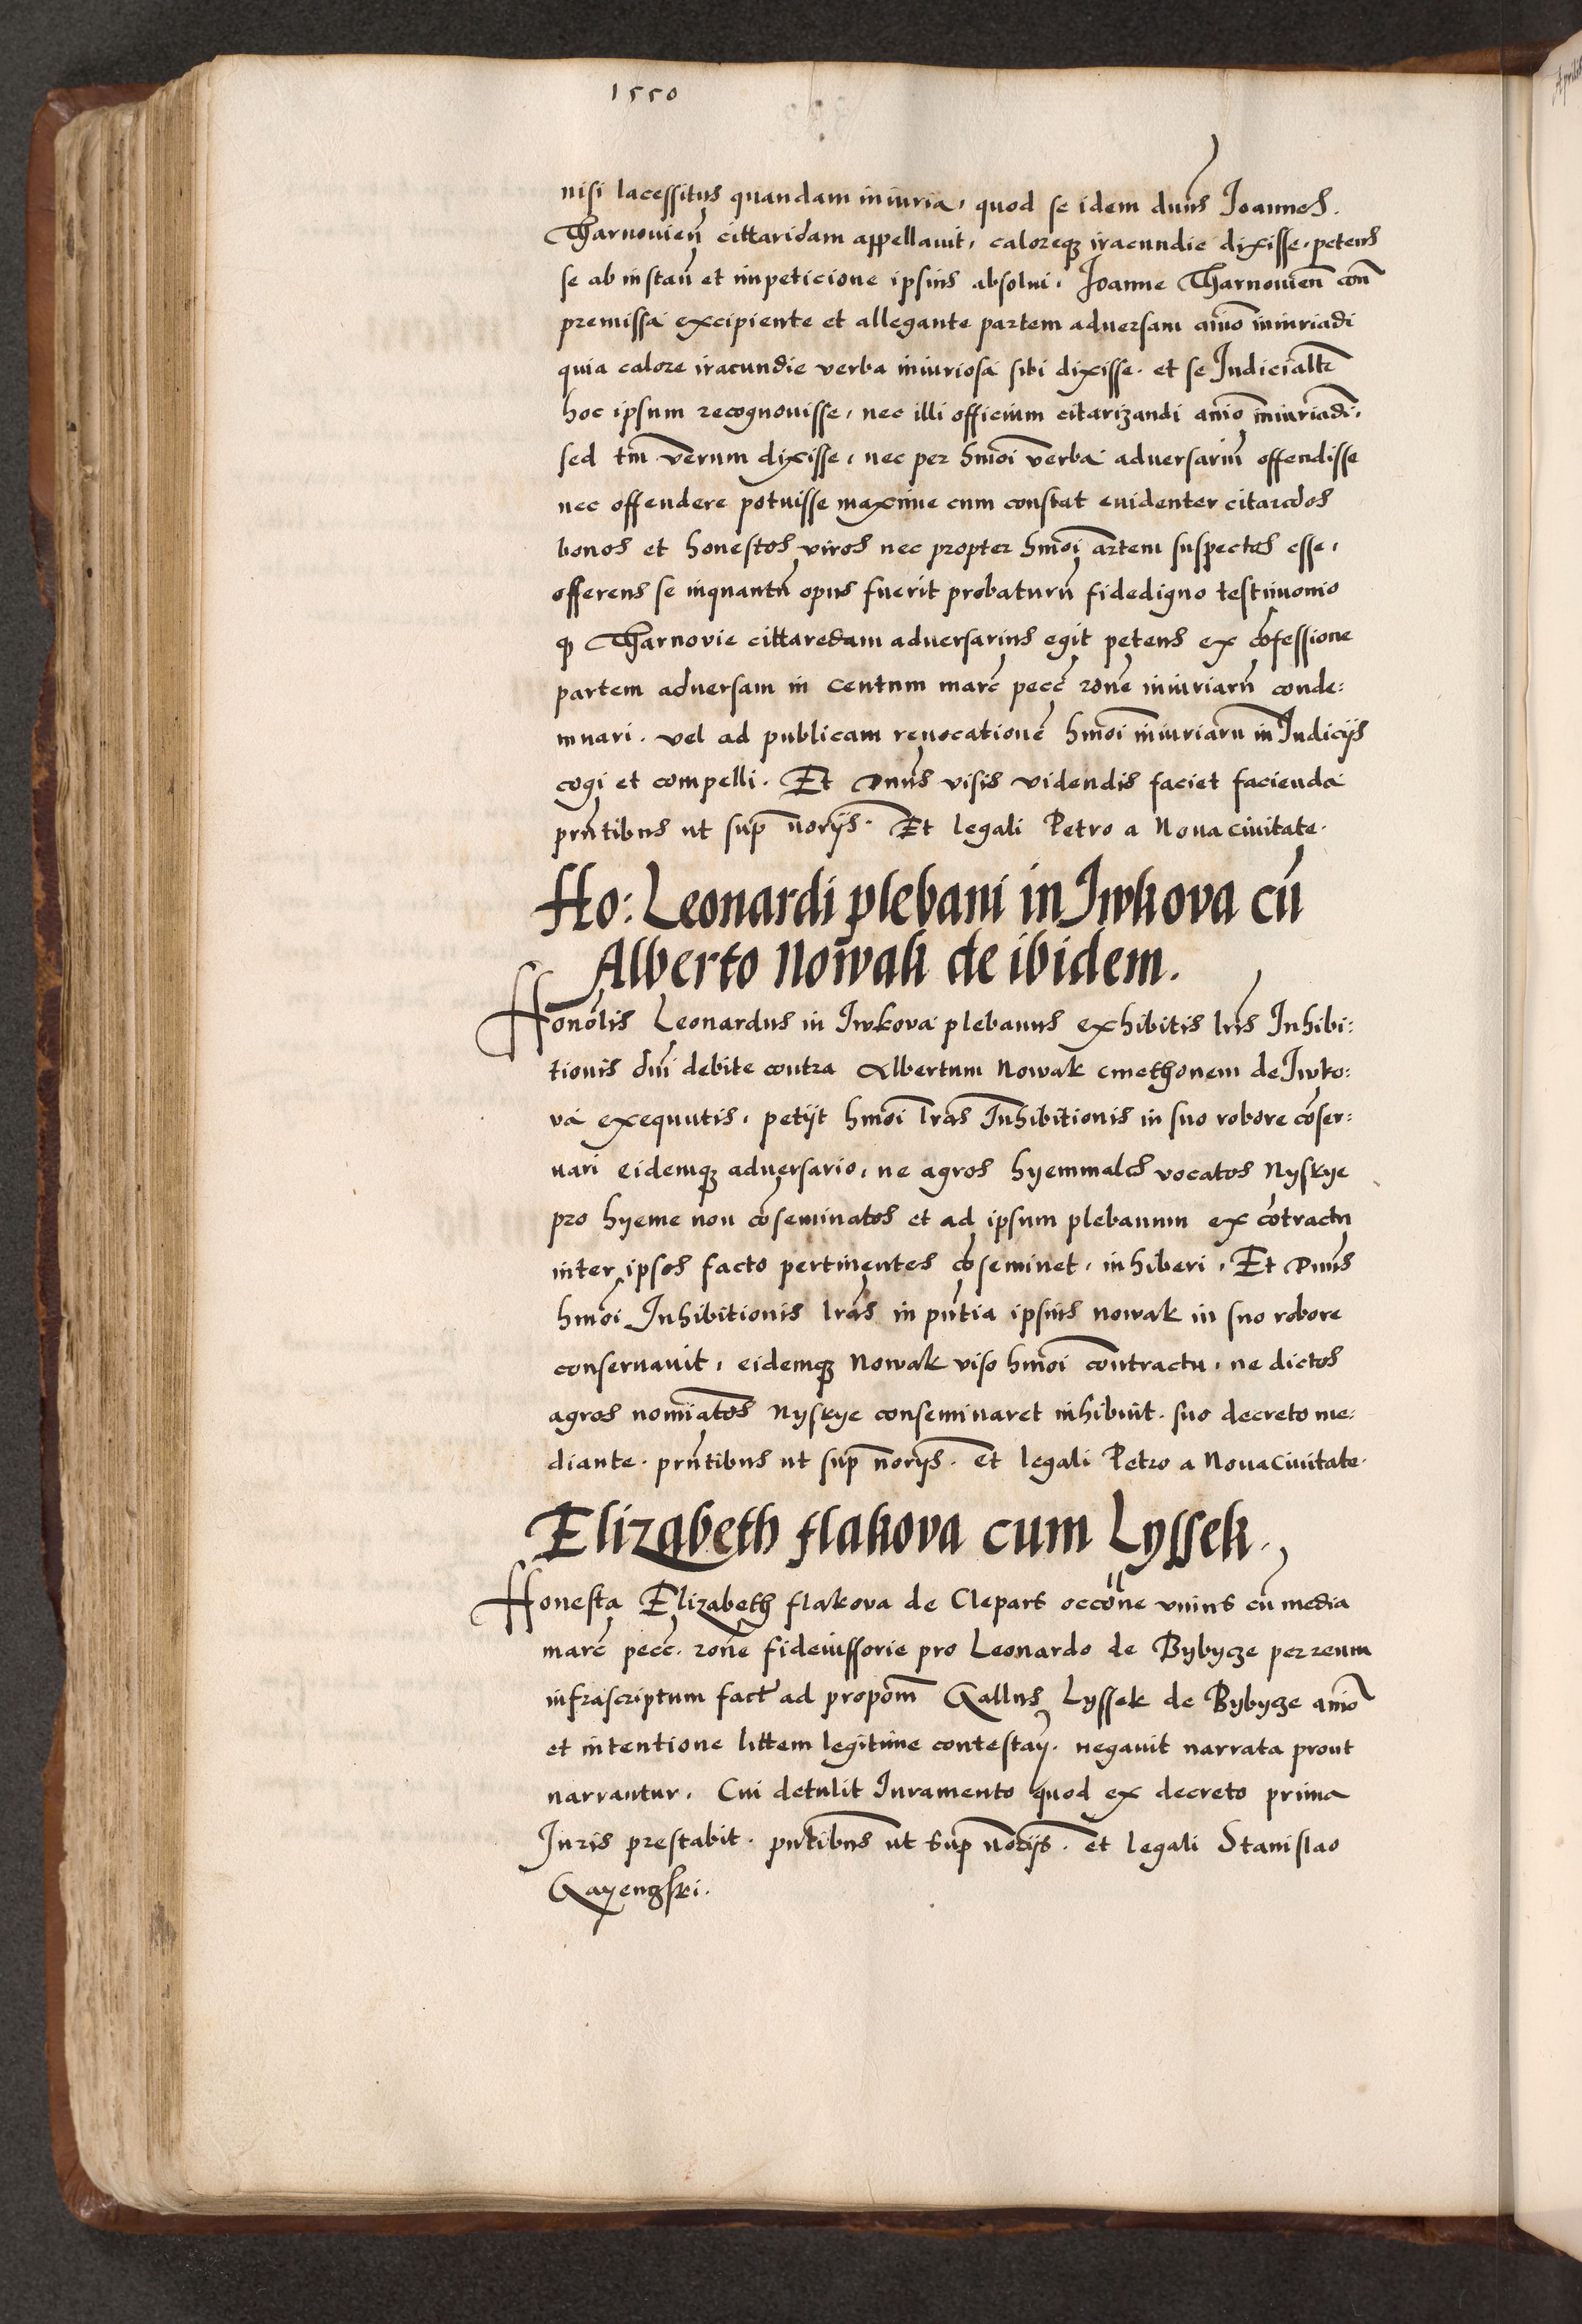 1550
nisi lacessitus quandam iniuria, quod se idem dnus Joannes.
Tharnovien̄ cittaridam appellavit, caloreqꝫ iracundie dixisse, petens
se ab instan̄ et impeticione ipsius absolui. Joanne Tharnovien̄ con̄
premissa excipiente et allegante partem adversam aīo iniuriādi
quia calore iracundie verba iniuriosa sibi dixisse. et se Judicialtr̄
hoc ipsum recognovisse, nec illi officium citarizandi aīo iniuriādi,
sed tm̄ verum dixisse, nec per hmōi verba adversariū offendisse
nec offendere potuisse maxime cum constat evidenter citaredos
bonos et honestos viros nec propter hmōi artem suspectos esse,
offerens se inquantū opus fuerit probaturū fidedigno testimonio
ꝙ Tharnovie cittaredam adversarius egit petens ex cōfessione
partem adversam in centum marc̄ pecc̄ rōne iniuriarū conde:
mnari. vel ad publicam revocationē hmōi iniuriarū in Judicijs
cogi et compelli. Et Dnus visis videndis faciet facienda
prn̄tibus ut sup̄ norijs. Et legali Petro a Nova civitate.
Ho: Leonardi plebani in Iwkova cū
Alberto Nowak de ibidem.
Honōlis Leonardus in Iwkova plebanus exhibitis lris Inhibi:
tionis dni debite contra Albertum Nowak cmethonem de Iwko:
va exequutis, petijt hmōi lras Inhibitionis in suo robore cōser:
vari eidemqꝫ adversario, ne agros hyemmales vocatos Nyskye
pro hyeme non cōseminatos et ad ipsum plebanum ex cōtractu
inter ipsos facto pertinentes cōseminet, inhiberi. Et Dnus
hmōi Inhibitionis lras in pn̄tia ipsius nowak in suo robore
conservavit, eidemqꝫ Nowak viso hmōi contractu, ne dictos
agros nomīatos Nyskye conseminaret inhibuit. suo decreto me:
diante. prn̄tibus ut sup̄ norijs. et legali Petro a Nova Civitate.
Elizabeth flakova cum Lyssek.
Honesta Elizabeth flakova de Clepars occōne unius cū media
marc̄ pecc̄. rōne fideiussorie pro Leonardo de Bybycze per reum
infrascriptum fact̄ ad propōm̄ Gallus Lyssek de Bybycze aīo
et intentione littem legitime contestan̄. negavit narrata prout
narrantur. Cui detulit Iuramento quod ex decreto prima
Juris prestabit. pn̄tibus ut sup̄ norijs. et legali Stanislao
Gayengski.